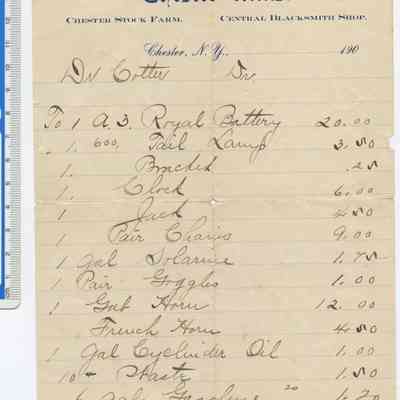 CHESTER STOCK FARM. CENTRAL BLACKSMITH SHOP.
Chester, N.Y., 190
Dr Cotter Dr.
To 1 A.3. Royal Battery 20.00
1. 600, Tail Lamp 3.50
1. Bracket .25
1. Clock 6.00
1 Jack 4.50
1 Pair Chains 9.00
1 gal Solarine 1.75
1 Pair Goggles 1.00
1 Horn 12.00
French Horn 4.50
1 Gal Cyclinder Oil 1.00
10 Waste 1.50
6 gals Gasoline 20 1.20